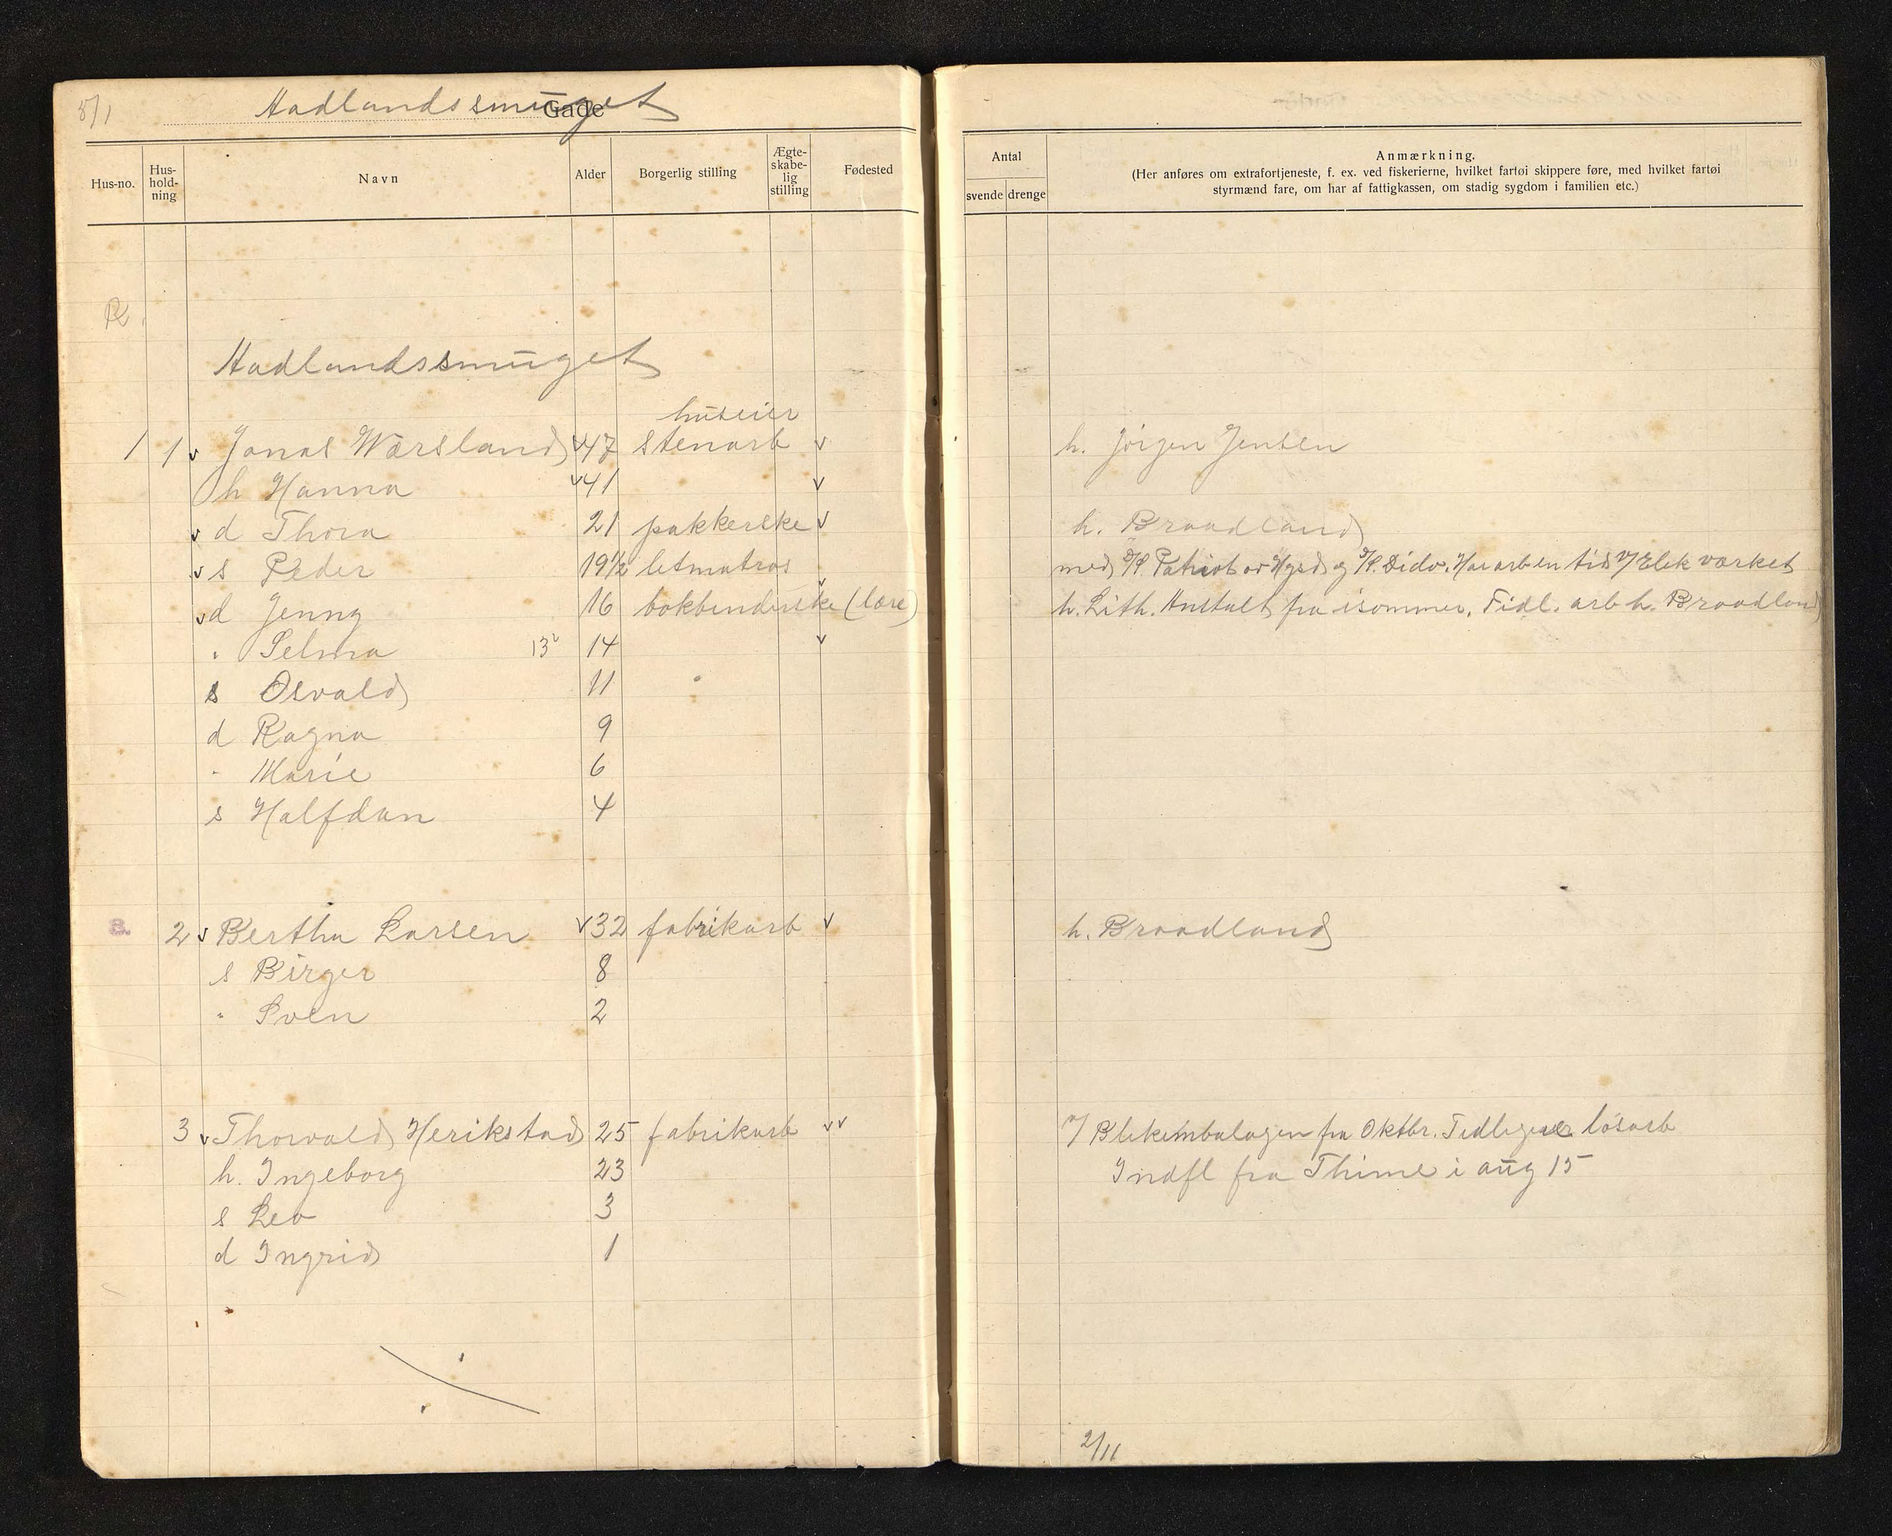 5/1
Hadlandssmuget Gade
Hus-no. Hus-hold-ning Navn Alder Borgerlig stilling Ægte-skabe-lig stilling Fødested
Antal svende drenge
Anmærkning.
(Her anføres om extrafortjeneste, f. ex. ved fiskerierne, hvilket fartøi skippere føre, med hvilket fartøi
styrmænd fare, om har af fattigkassen, om stadig sygdom i familien etc.)
R.
Hadlandssmuget
huseier
1 1 v Jonas Warsland v 47 stenarb v h. Jörgen Jensen
h Hanna v 41 v
v d Thora 21 pakkerske v h. Braadland
v s Peder 19 1/2 letmatros med D/S. Patriot av Hgsd og D/S. Dido. Har arb en tid v/ Elek værket
v d Jenny 16 bokbinderske v (lære) h. Lith. Anstalt fra isommer. Tidl. arb h. Braadland
" Selma 13² 14 v
s Osvald 11
d Ragna 9
" Marie 6
s Halfdan 4
2 v Bertha Larsen v 32 fabrikarb v h. Braadland
s Birger 8
" Sven 2
3 v Thorvald Herikstad 25 fabrikarb v v v/ Blikembalagen fra Oktbr. Tidligere lösarb
h. Ingeborg 23 Indfl fra Thime i aug 15
s Leo 3
d Ingrid 1
2/11